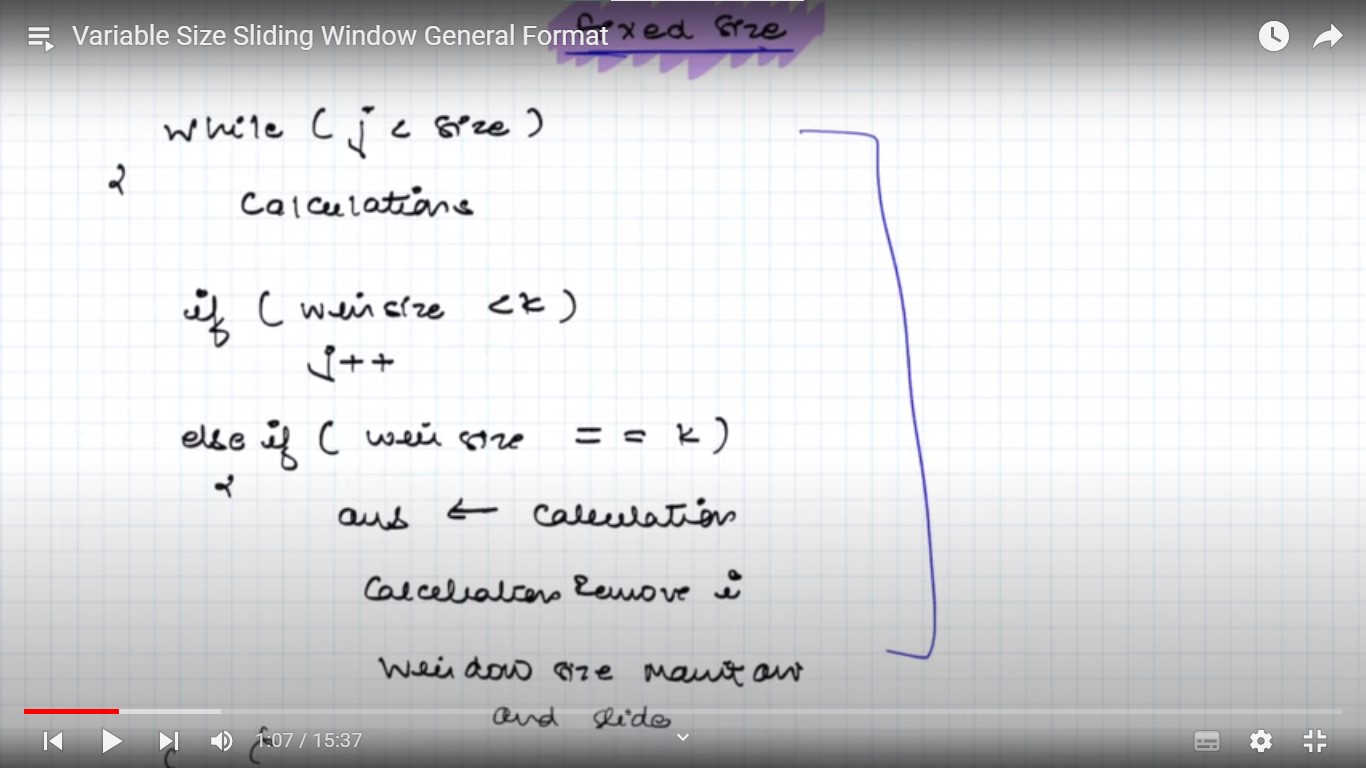 Variable Size Sliding Window General Format
Fixed Size
while ( j < size )
{
Calculations
if ( win size < k )
j++
else if ( win size == k )
{
ans ← calculation
Calculation Remove i
window size maintain
and slide
1:07 / 15:37